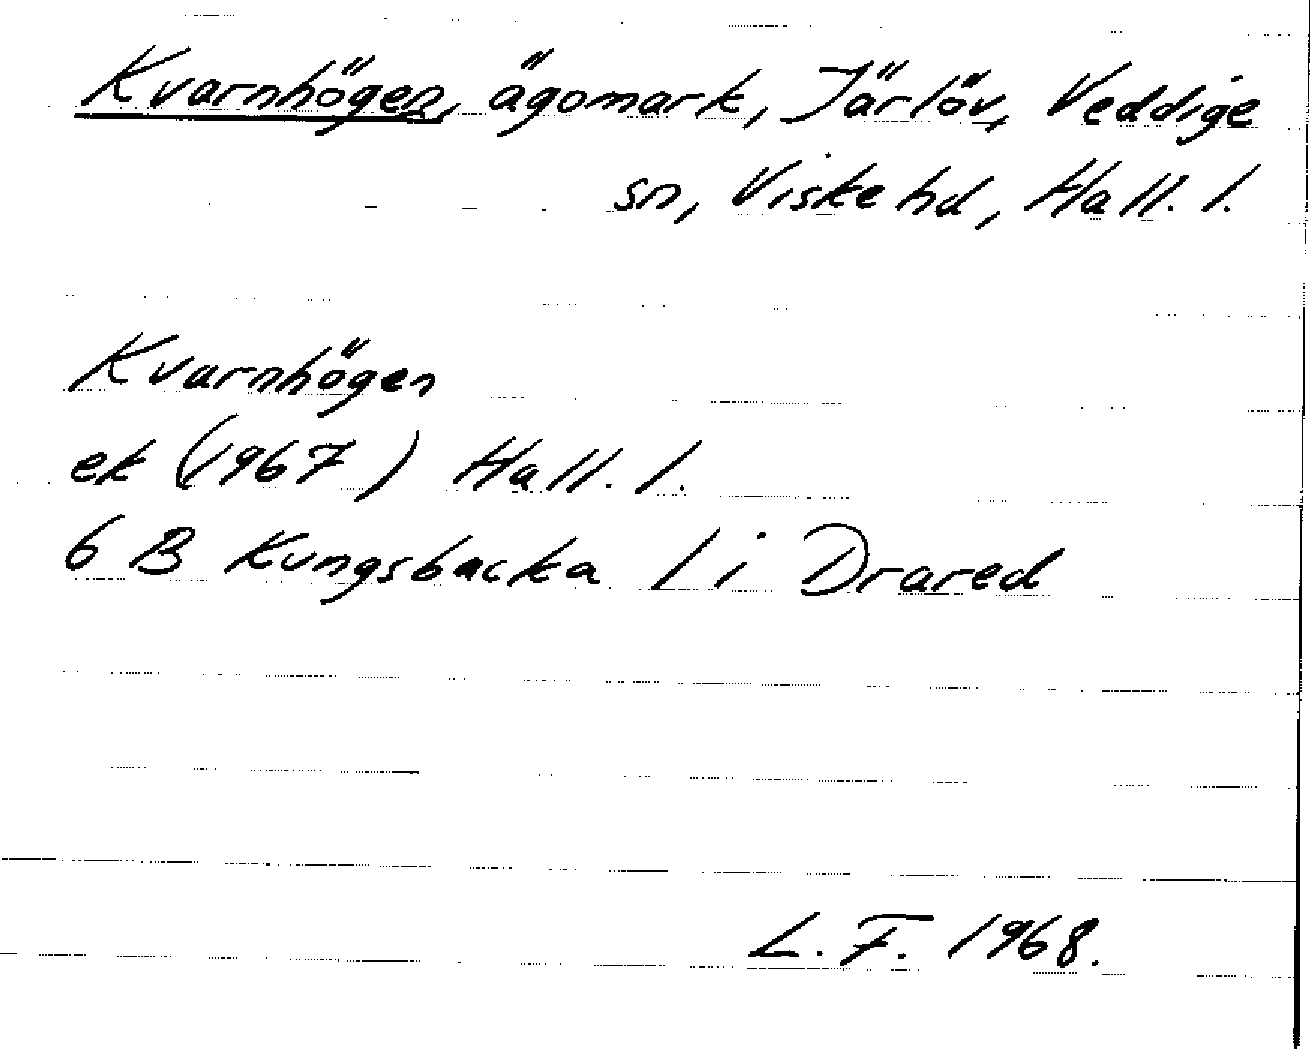 Kvarnhögen, ägomark, Järlöv, Veddige
sn, Viske hd, Hall. l.
Kvarnhögen
ek (1967) Hall. l.
6 B Kungsbacka 1 i Drared
L. F. 1968.